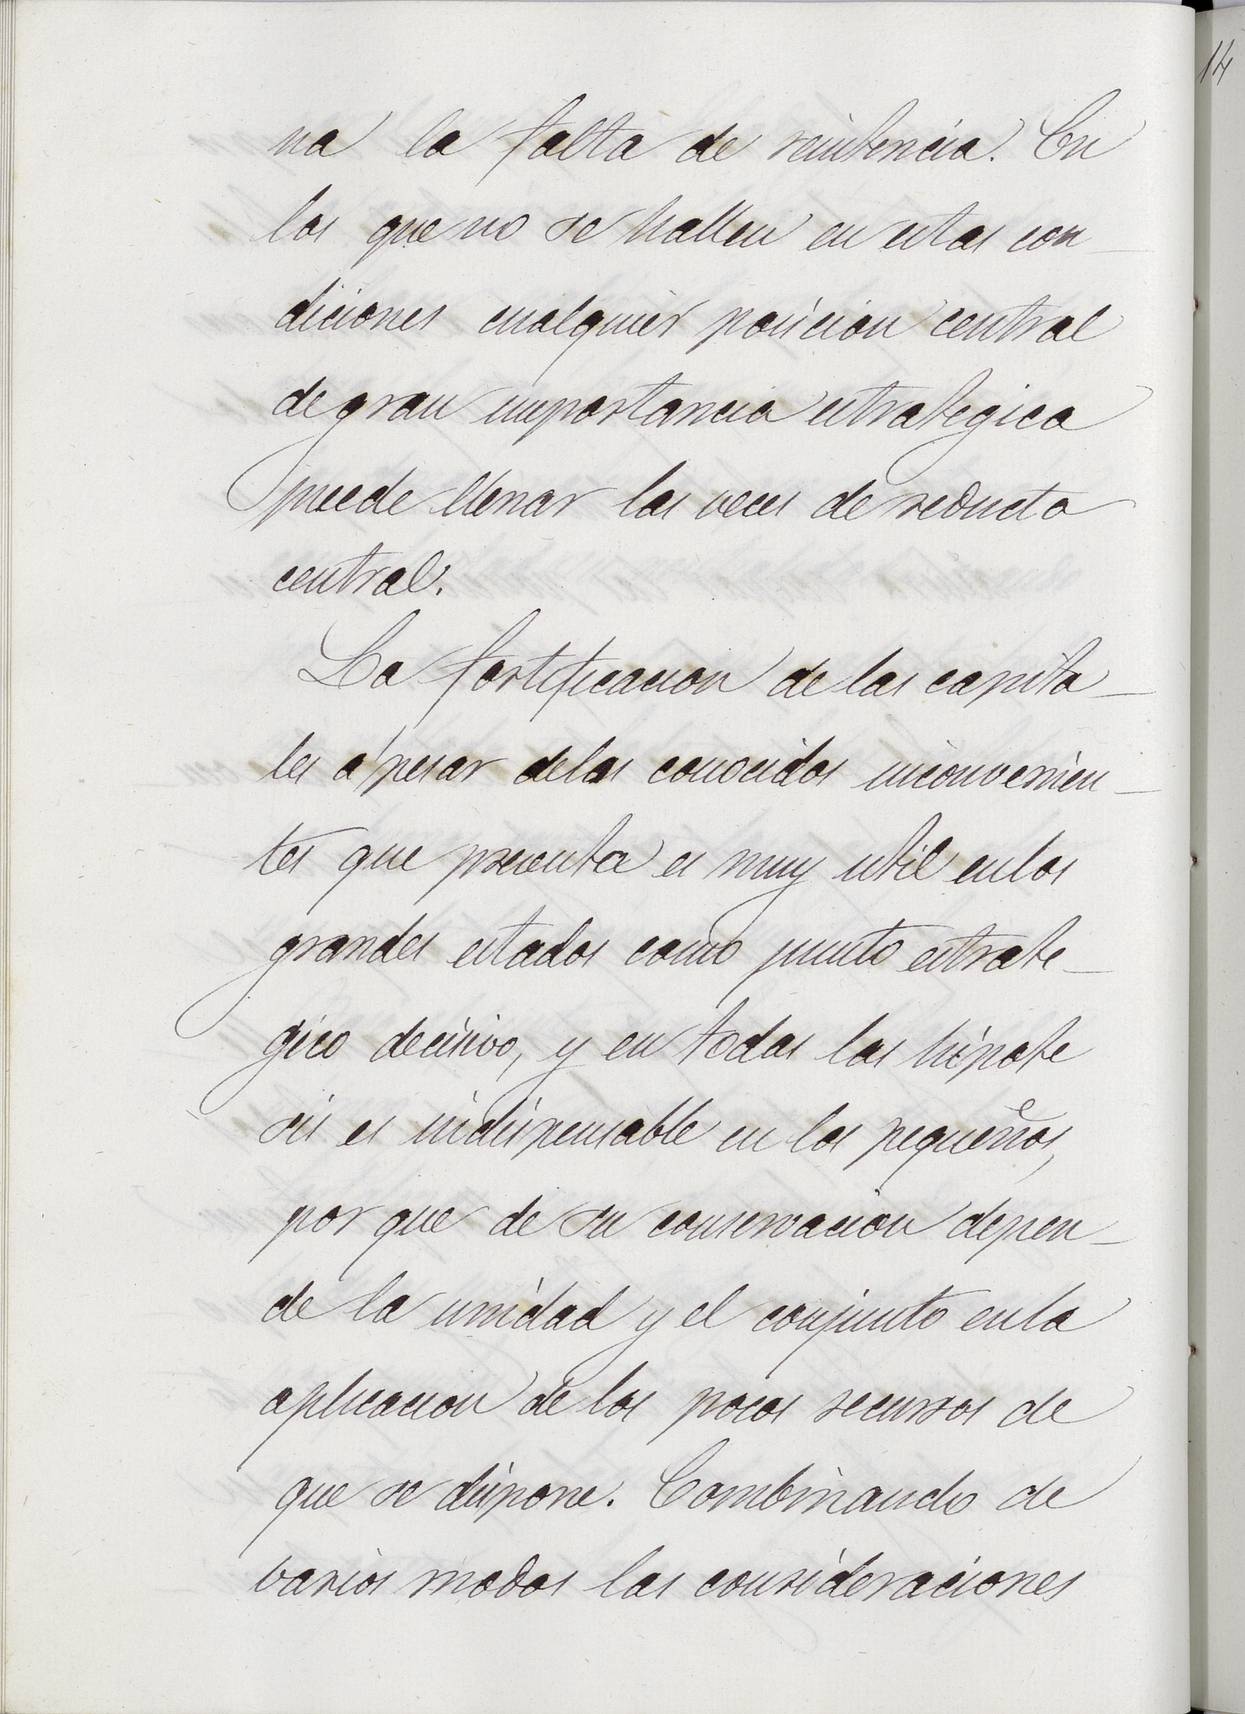 na la falta de resistencia. En
los que no se hallen en estas con-
diciones cualquier posicion central
de gran importancia estrategica
puede llenar las veces de reducto
central.
La fortificacion de las capita-
les á pesar de los conocidos inconvenien-
tes que presenta es muy util en los
grandes estados como punto estrate-
gico decisivo, y en todas las hipote
sis es indispensable en los pequeños,
por que de su conservacion depen-
de la unidad y el conjunto en la
aplicacion de los pocos recursos de
que se dispone. Combinando de
varios modos las consideraciones
14